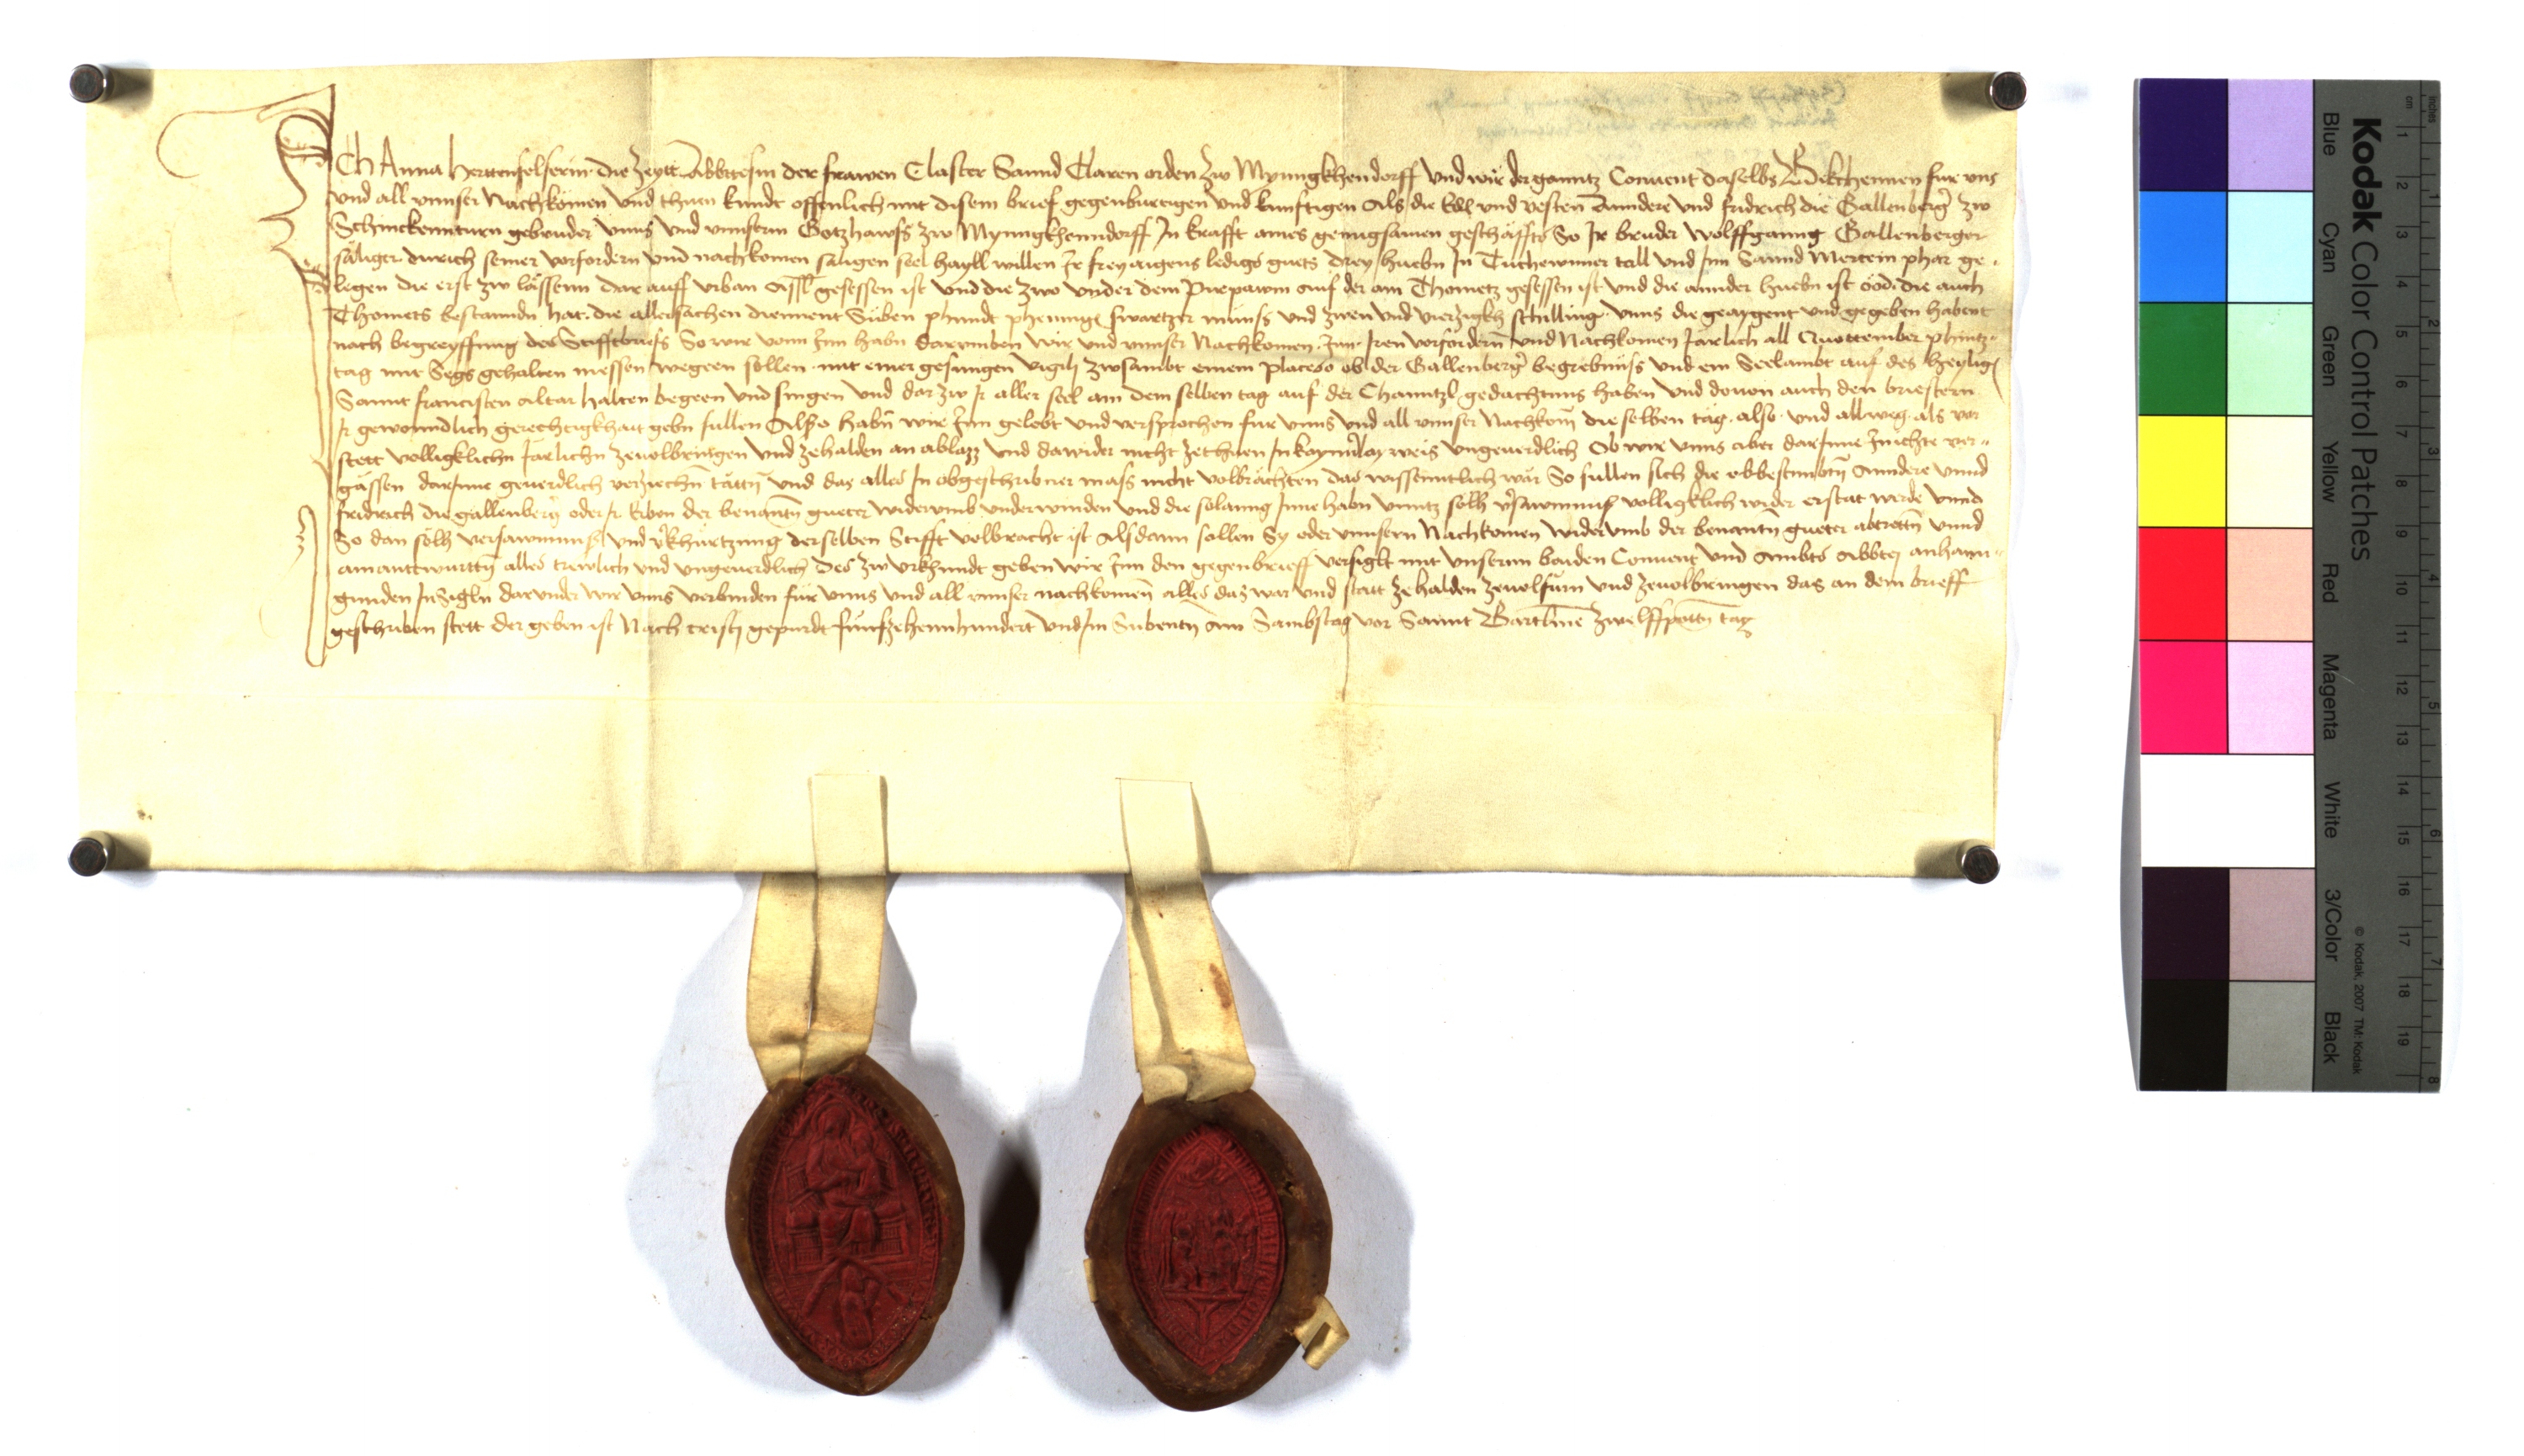 ICh Anna herttenfelserin die Zeytt Abbttesin der frawen Claster Sannd Claren orden Zw Mynngkhendorff Und wir der ganntz Conuent daselbs Bekhennen fur vns
vnd all vnnser Nachkomen Und thuen kundt offenlich mit disem brief gegenburtigen Und kunfftigen Als die Edl und vesten Anndere und fridrich die Gallenberger zw
Schinckennturn gebruder vnns Vnd vnnserm Gotzhawss zw Mynngkhenndorff In krafft aines genugsamen geschäffts So Ir bruder Wolffganng Gallenberger
säliger durich seiner vorfordern vnd nachkomen säligen seel hayll willen Ir frey aigens ledigs guets drey huebn In Tuchewner tall Und Inn Sannd Mertein phar ge-
legen die erst zw lässenn dar auff Vrban gesessen ist Und die zwo vnder dem Pirpawm auf der ain Thometz gesessen ist Und die annder huebn ist ööd die auch
Thomets bestanndn hat. die allersachen diennent Süben phundt phening swartzer münss Vnd zwen vnd vierzigkh schilling. vnns die geaygent Und gegeben habent
nach begreyffung des Stifftbriefs So wir vonn Inn habn Darumben Wir Vnd vnnser Nachkomen. Inn. Iren vorfordern Und Nachkomen Järlich all Quottember phintz-
tag mit Segs gehalten messen wegeen sollen. mit einer gesungen vigili zwsambt einem placebo ob der Gallenberger begrebnüss Vnd ein Seelambt auf des heyligen
Sannt francisten altar halten begeen Vnd singen Und dar zw Ir aller seel an dem selben tag auf der Channtzl gedachtnus haben Und dauon auch den briestern
Ir gewonndlich gerechtigkhait gebn sullen Also habn wir Inn gelobt Vnd versprochen fur vnns Und all vnnser Nachkom die selben tag. also. Und allweg. als vor
stett volligklichn Järlichn zeuolbringen Vnd zehalden an ablazz Vnd dawider nicht zethuen In kaynnerlay weis vngeuerdlich Ob wir vnns aber darInne Inichte ver-
gässen darInne geuerdlich verziechn tättn Vnd das alles In obgeschribner mass nicht volbrächten das wissenntlich wär So sullen sich die obbestimbtn Anndere vnnd
fridrich die gallenberg oder Ir Erben der benanntn gueter widerumb vnderwinden Vnd die solanng Inne habn vnntz solh versawmnuss volligklich wider erstat werde vnnd
So dan sölh versawmnuss Und verkhürtzung derselben Stifft volbracht ist Alsdann sollen Sy oder vnnsern Nachkomen widerumb der benantn gueter abtrettn vnnd
einantwurttn alles trewlich vnd vngeuerdlich Des zw vrkhundt geben wir Inn den gegenbrieff versiglt mit vnserm baiden Conuent Vnd Ambts Abbtej anhann-
gunden Insigln darunder wir vnns verbinden für vnns vnd all vnnser nachkomen alles das war vnd statt ze halden zeuolfürn vnd zeuolbringen das an dem brieff
geschriben stett der geben ist Nach cristj gepurdt fünfzehennhundert Vnd Im Sübentn Am Sambstag vor Sannt Bartlme zwelffpottn tag
Kodak Color Control Patches
Blue Cyan Green Yellow Red Magenta White 3/Color Black
© Kodak, 2007 TM: Kodak
inches 1 2 3 4 5 6 7 8
cm 1 2 3 4 5 6 7 8 9 10 11 12 13 14 15 16 17 18 19